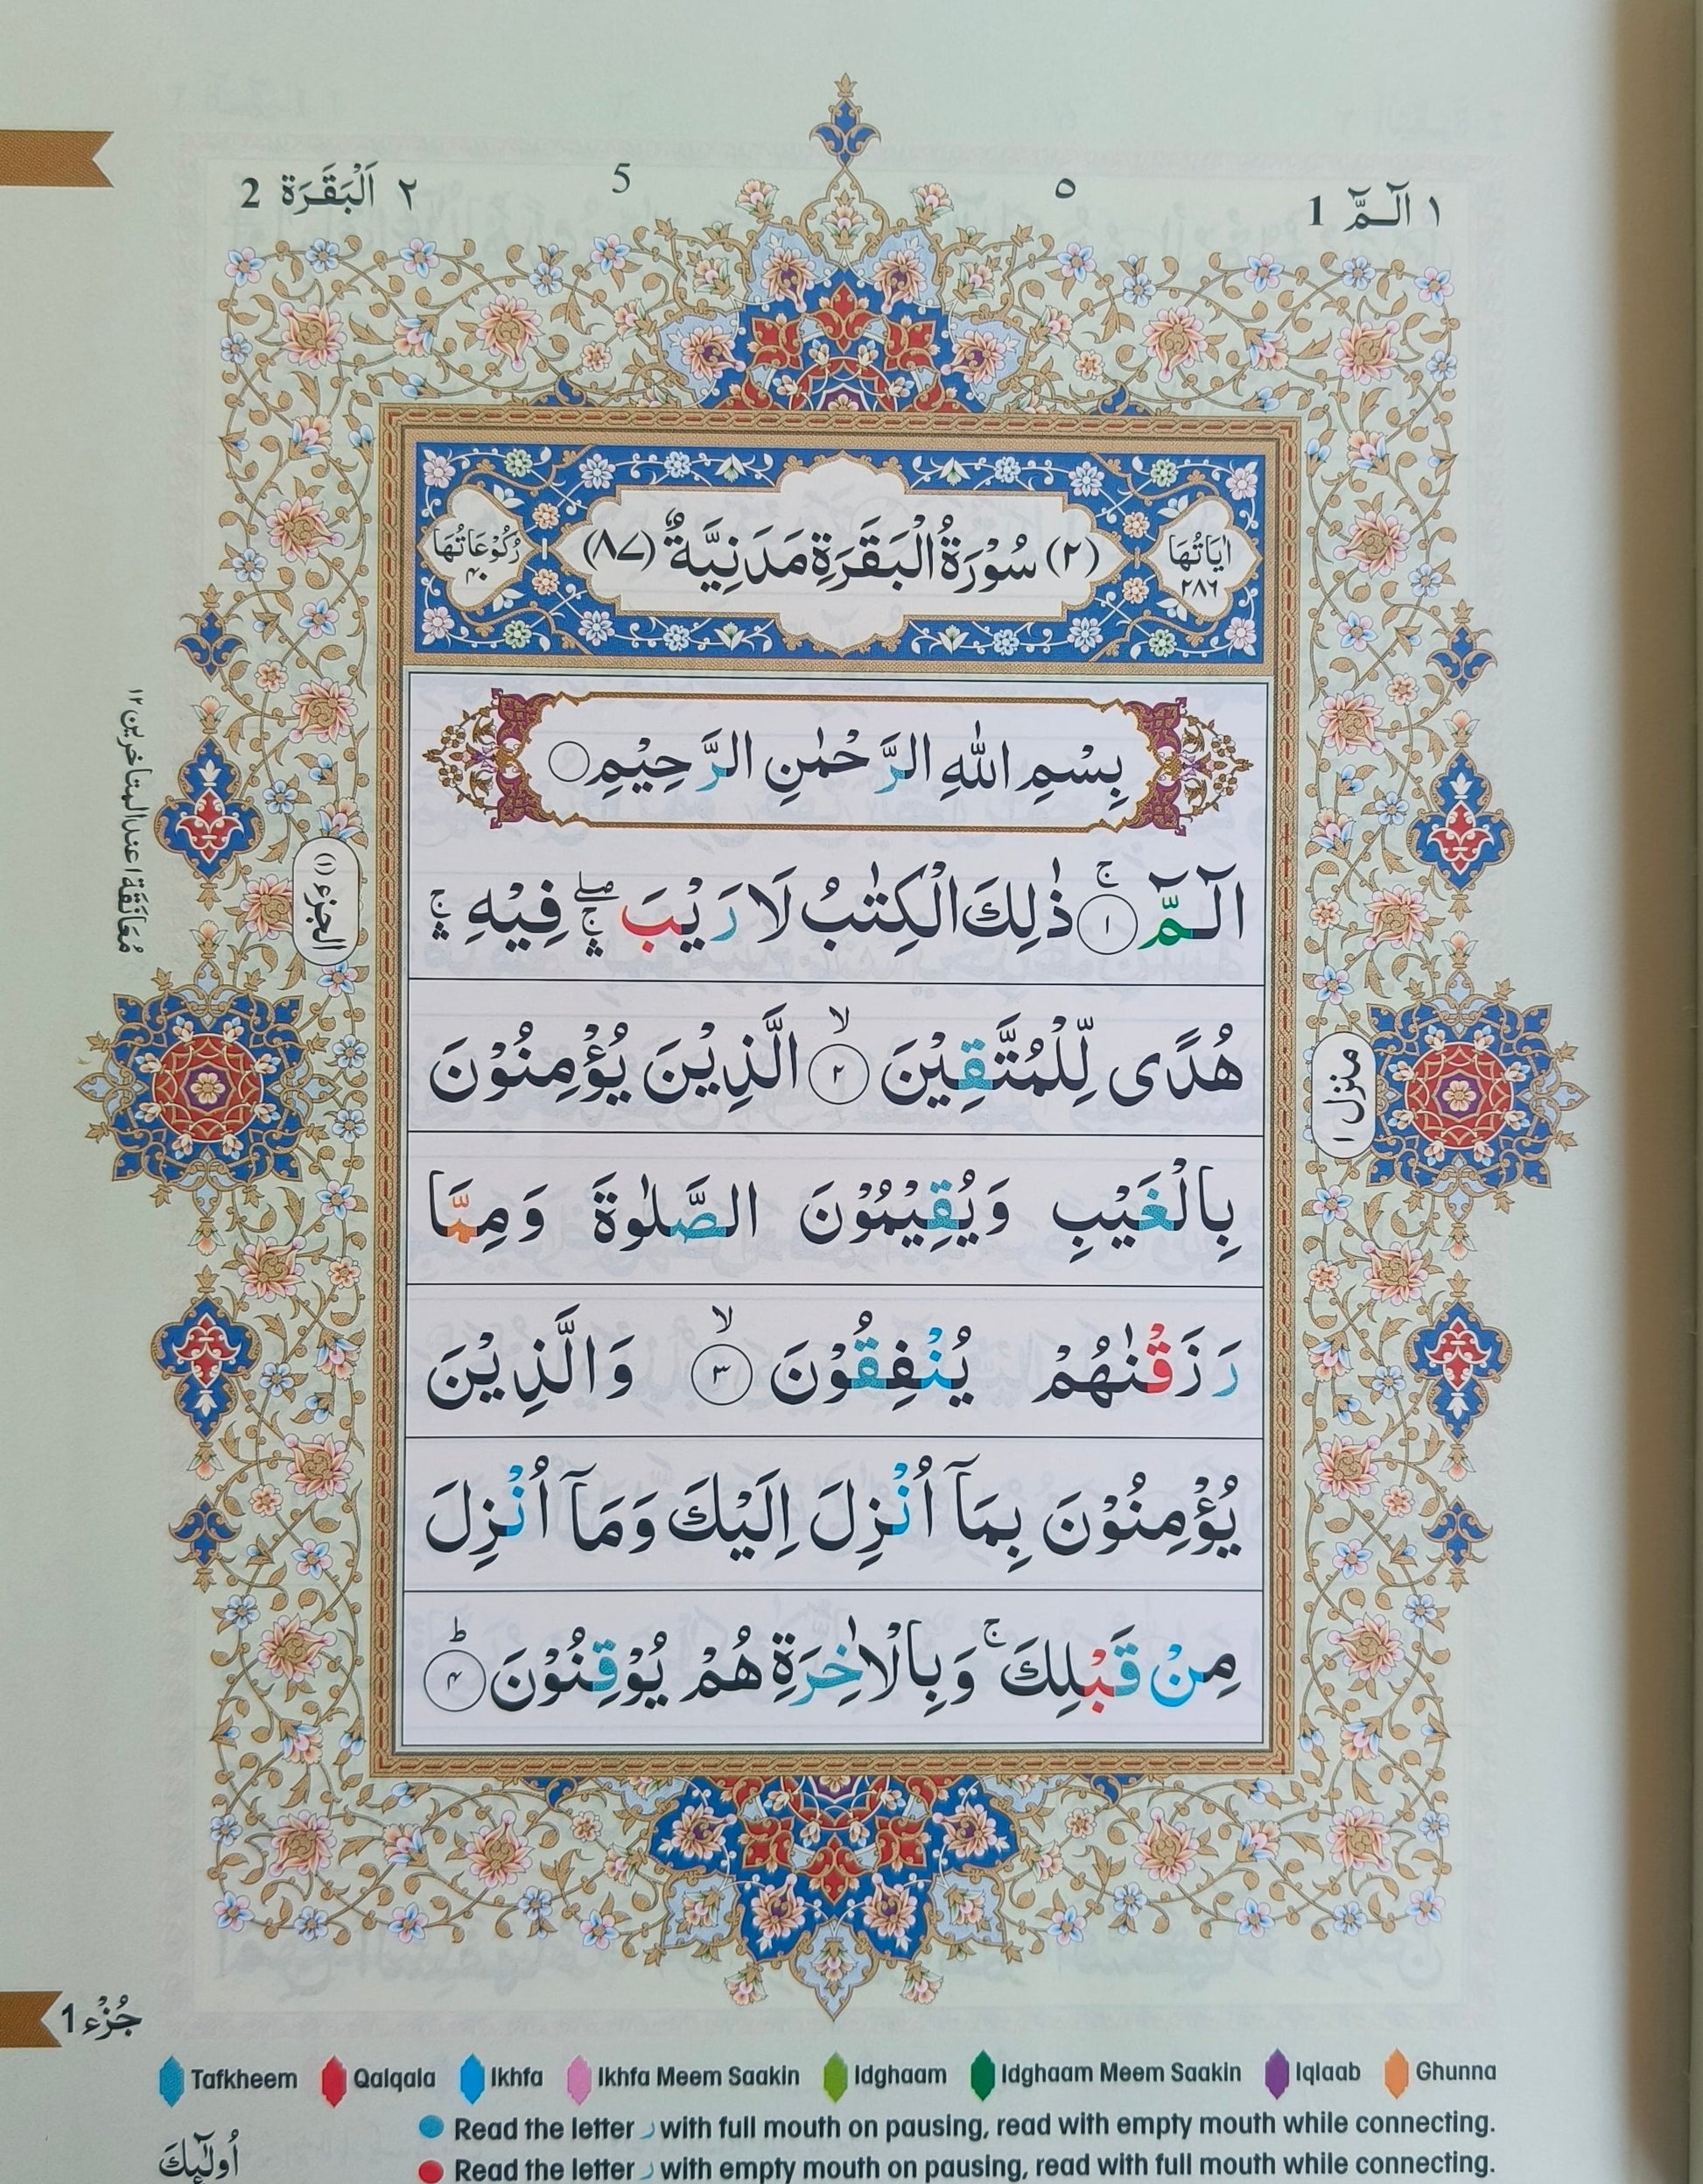 ١ الٓـمّٓ 1 ٥ 5 ٢ اَلْبَقَرَة 2
اٰيَاتُهَا ٢٨٦ (٢) سُوْرَةُ الْبَقَرَةِ مَدَنِيَّةٌ (٨٧) رُكُوْعَاتُهَا ۴۰
بِسْمِ اللّٰهِ الرَّحْمٰنِ الرَّحِيْمِ
الٓـمّٓ ۚ ﴿١﴾ ذٰلِكَ الْكِتٰبُ لَا رَيْبَ ۖۛۚ فِيْهِ ۚۛ
هُدًى لِّلْمُتَّقِيْنَ ۙ ﴿٢﴾ الَّذِيْنَ يُؤْمِنُوْنَ
بِالْغَيْبِ وَيُقِيْمُوْنَ الصَّلٰوةَ وَمِمَّا
رَزَقْنٰهُمْ يُنْفِقُوْنَ ۙ ﴿٣﴾ وَالَّذِيْنَ
يُؤْمِنُوْنَ بِمَآ اُنْزِلَ اِلَيْكَ وَمَآ اُنْزِلَ
مِنْ قَبْلِكَ ۚ وَبِالْاٰخِرَةِ هُمْ يُوْقِنُوْنَ ؕ ﴿۴﴾
منزل ١
الجزء (١)
مُعَانَقَة ١ عند المتاخرين ١٢
جُزْء 1
Tafkheem Qalqala Ikhfa Ikhfa Meem Saakin Idghaam Idghaam Meem Saakin Iqlaab Ghunna
Read the letter ر with full mouth on pausing, read with empty mouth while connecting.
Read the letter ر with empty mouth on pausing, read with full mouth while connecting.
اُولٰٓئِكَ